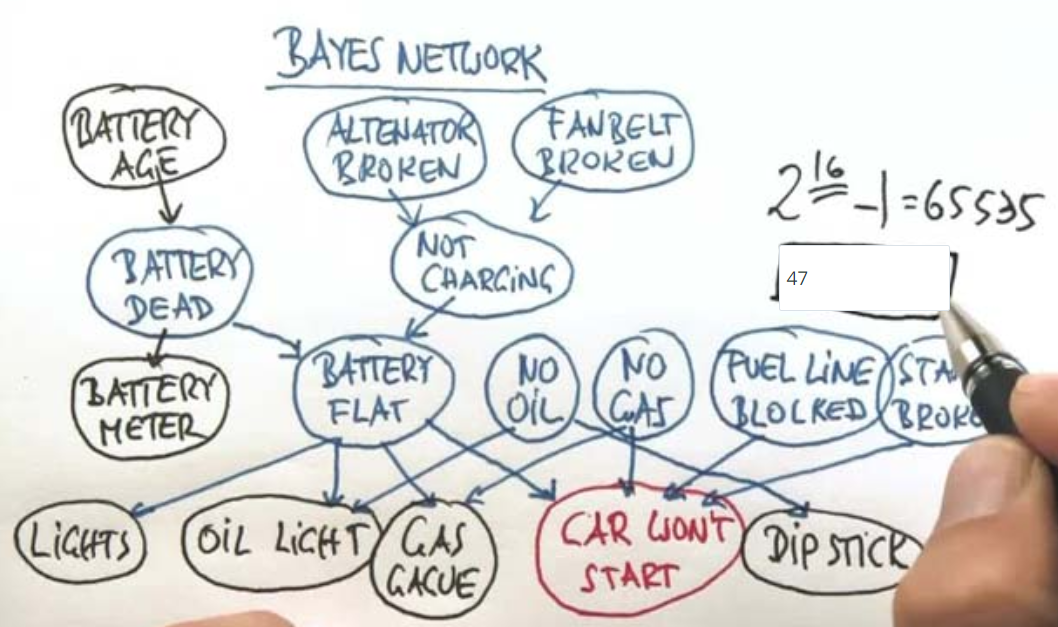 BAYES NETWORK
BATTERY
AGE
ALTENATOR
BROKEN
FANBELT
BROKEN
2^16 -1 = 65535
BATTERY
DEAD
NOT
CHARGING
47
BATTERY
METER
BATTERY
FLAT
NO
OIL
NO
GAS
FUEL LINE
BLOCKED
STA
BROK
LIGHTS
OIL LIGHT
GAS
GAGUE
CAR WON'T
START
DIP STICK